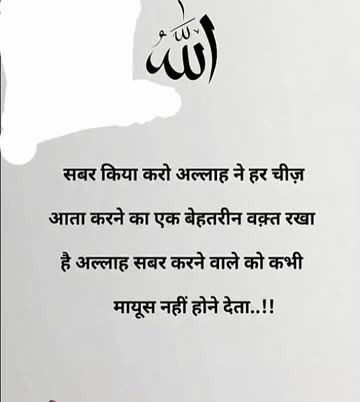 الله
सबर किया करो अल्लाह ने हर चीज़
आता करने का एक बेहतरीन वक़्त रखा
है अल्लाह सबर करने वाले को कभी
मायूस नहीं होने देता..!!